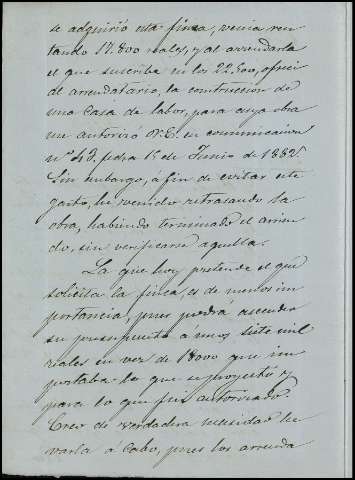 se adquirió esta finca, venia ren
tando 17.800 reales, y al arrendarla
el que suscribe en los 22.500, ofreci
al arrendatario, la construccion de
una casa de labor, para cuya obra
me autorizó V.E. en comunicacion
nº 43, fecha 1º de Junio de 1882.
Sin embargo, á fin de evitar este
gasto, he venido retrasando la
obra, habiendo terminado el arrien
do, sin verificarse aquella.
La que hoy pretende el que
solicita la finca, es de menos im
portancia, pues podrá ascender
su presupuesto á unos siete mil
reales en vez de 18000 que im
portaba la que se proyectó y
para lo que fui autorizado.
Creo de verdadera necesidad lle
varla á cabo, pues los arrenda